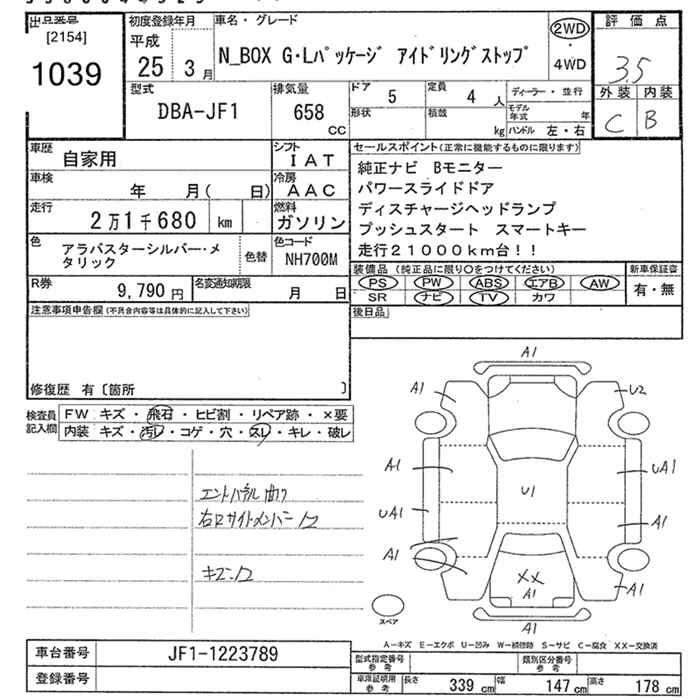 出品番号
[2154]
1039
初度登録年月
平成
25
3月
車名・グレード
N_BOX G・Lパッケージ アイドリングストップ
2WD
・
4WD
評価点
3.5
外装 内装
C B
型式
DBA-JF1
排気量
658
CC
ドア
5
定員
4人
ディーラー・並行
形状
積載
kg
モデル年式 年
ハンドル 左・右
車歴
自家用
シフト
IAT
車検
年 月( 日)
冷房
AAC
走行
2万1千680 km
燃料
ガソリン
色
アラバスターシルバー・メ
タリック
色替
色コード
NH700M
R券
9,790円
名変通知期限
月 日
セールスポイント(正常に機能するものに限ります)
純正ナビ Bモニター
パワースライドドア
ディスチャージヘッドランプ
プッシュスタート スマートキー
走行21000km台!!
装備品 (純正品に限り○をつけてください)
新車保証書
PS PW ABS エアB AW
SR ナビ TV カワ
有・無
後日品
注意事項申告欄(不具合内容等は具体的に記入して下さい)
修復歴 有〔箇所 〕
検査員
記入欄
FW キズ・飛石・ヒビ割・リペア跡・×要
内装 キズ・汚レ・コゲ・穴・スレ・キレ・破レ
エンドパネル曲ワ
右Rサイドメンバーワ
キズ、ワ
A1
A1
U2
A1
UA1
UA1
U1
A1
A1
XX
A1
A1
A1
スペア
A-キズ E-エクボ U-凹み W-補修跡 S-サビ C-腐食 XX-交換済
車台番号
JF1-1223789
登録番号
型式指定番号
参考
類別区分番号
参考
車庫証明用
参考
長さ
339cm
幅
147cm
高さ
178cm